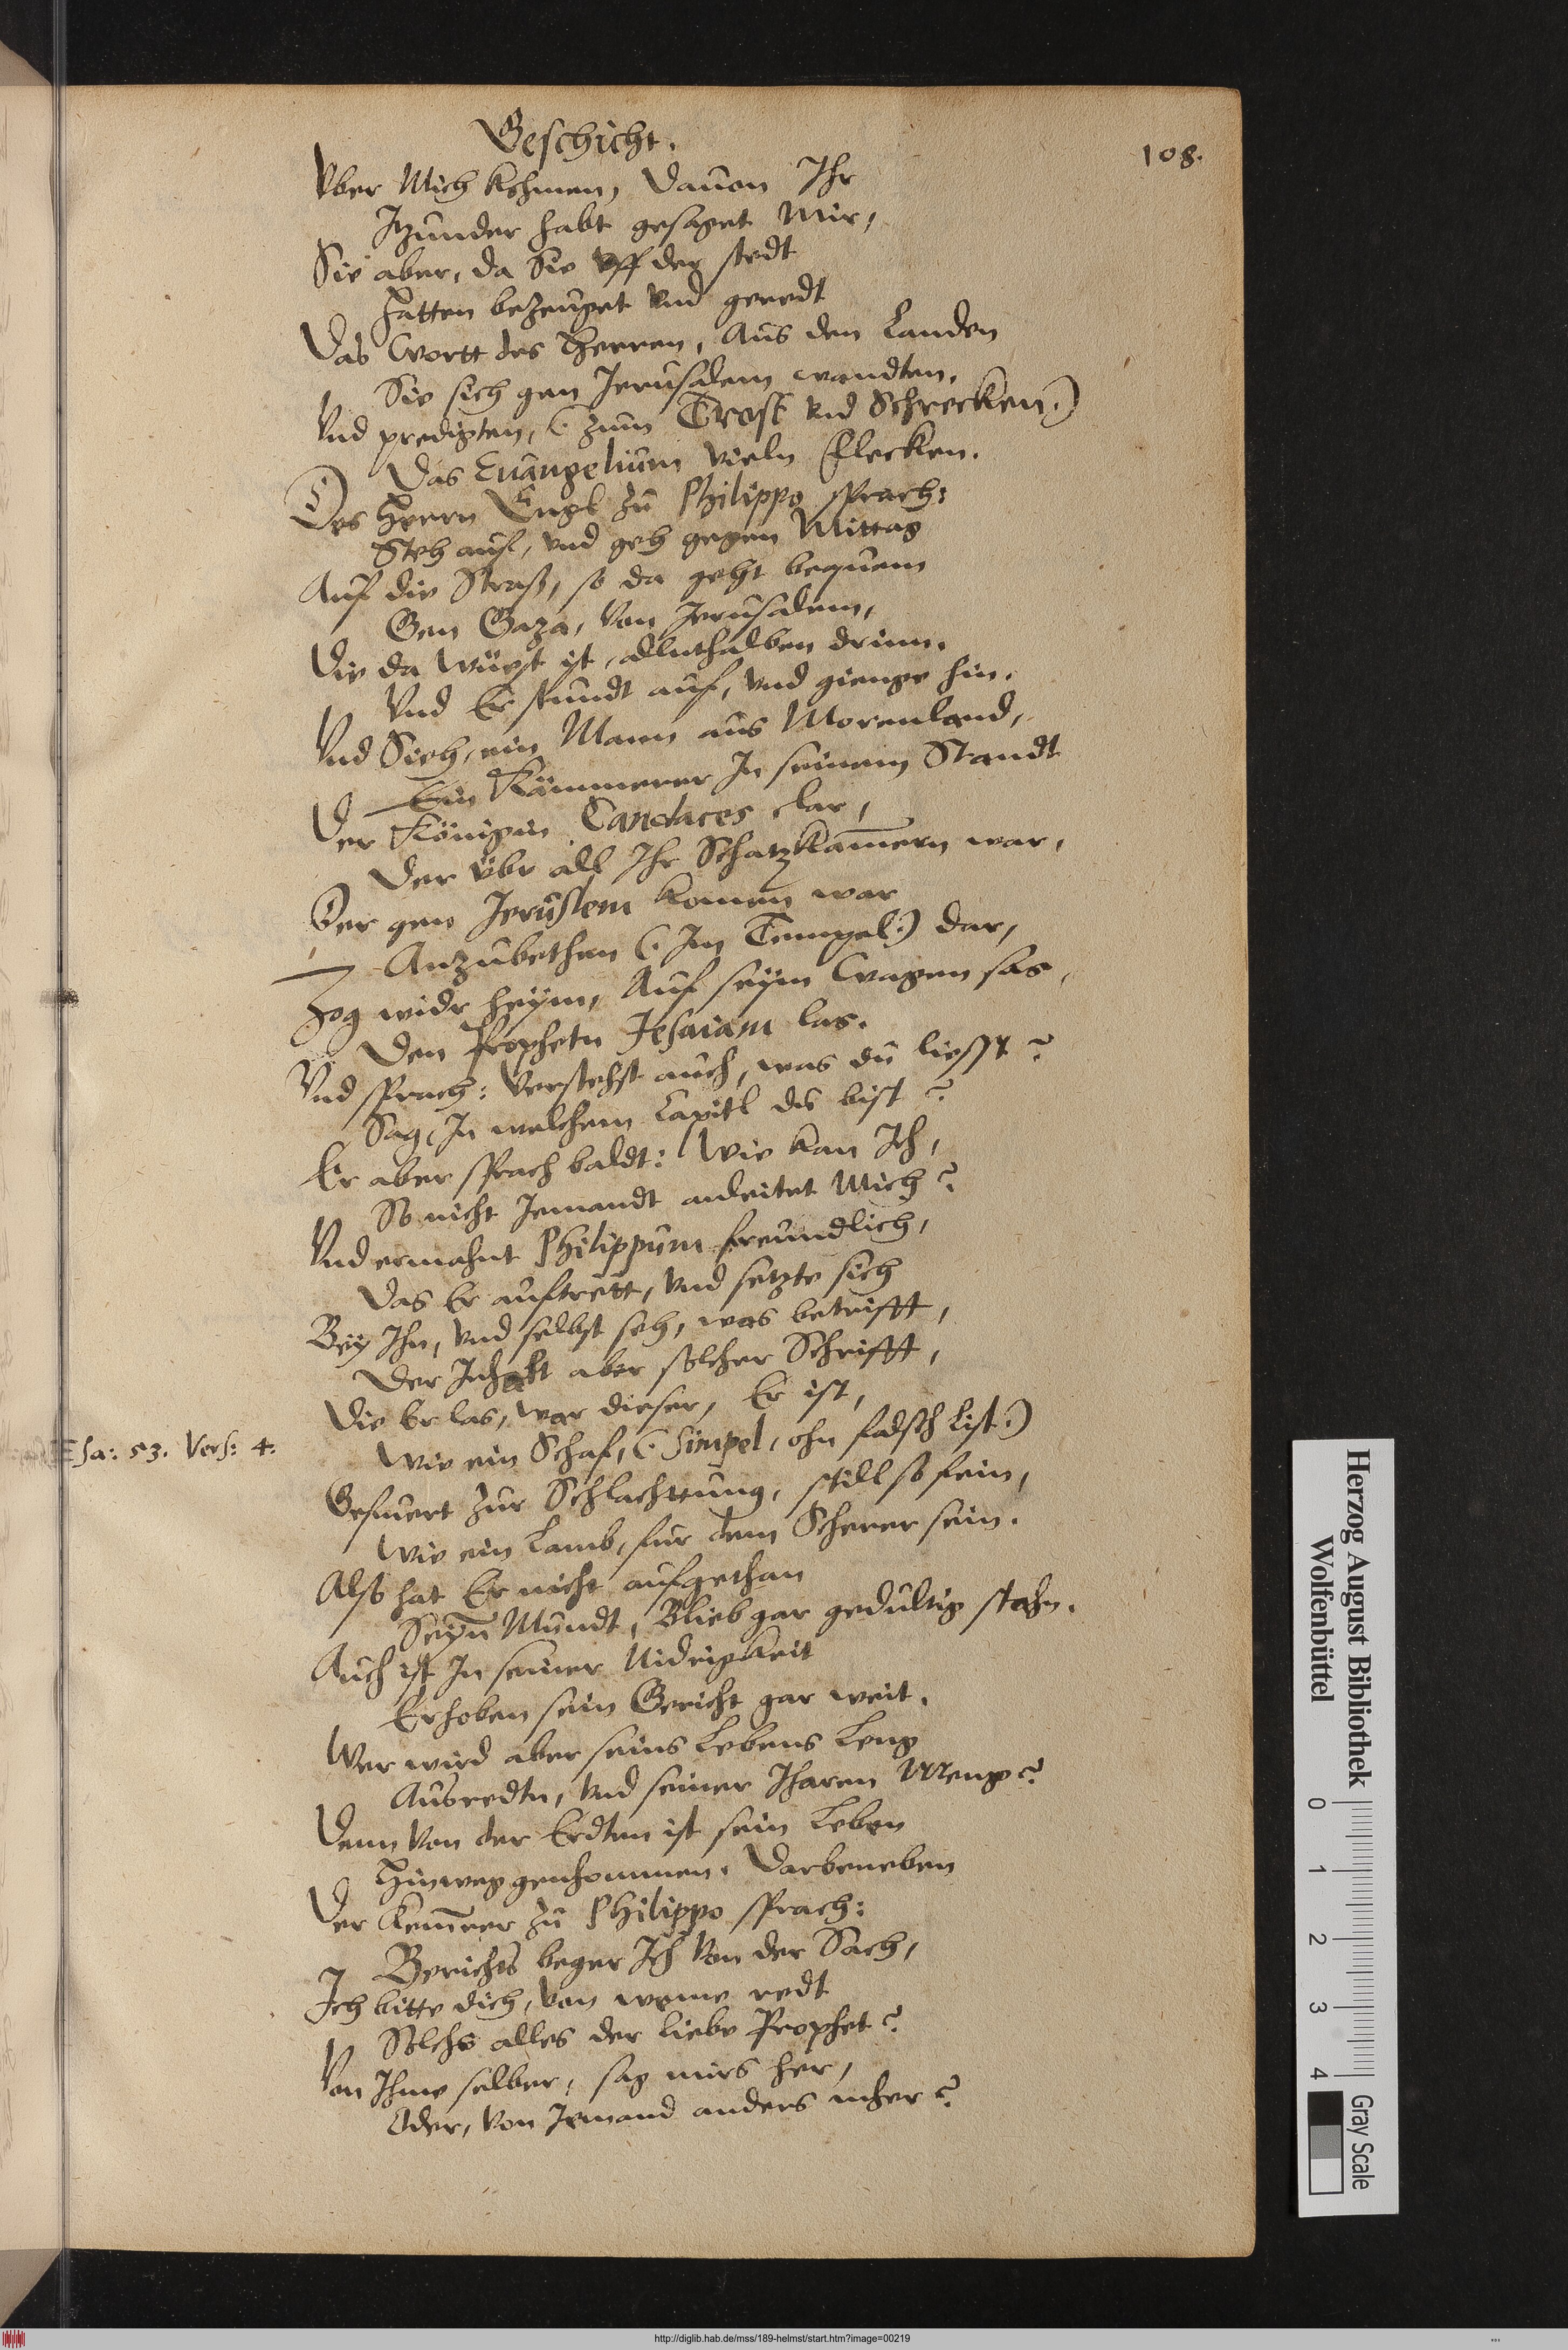 Geschicht.
108.
Vber Mich kehmen, dauon Ihr
Itzunder habt gesaget Mir,
Sie aber, da Sie vff der stedt
Hatten bezeuget vnd geredt
Das Wortt des Herren, Aus den Landen
Sie sich gen Jerusalem wandten.
Vnd predigten, (: zum Trost vnd Schrecken:)
Das Euangelium vieln Flecken.
Des Herrn Engl zu Philippo sprach:
Steh auf, vnd geh gegen Mittag
Auf die Straß, so da geht bequem
Gen Gaza, von Jerusalem,
Die da wüest ist, allnthalben drinn.
Vnd Er stundt auf, vnd gienge hin.
Vnd Sieh, ein Mann aus Morenland,
Ein Kämmerer In seinem Standt
Der Königin Candaces clar,
Der vbr all Ihr Schatzkam̄ern war,
Der gen Jeruslem komen war
Anzubethen (: Im Tempel:) dar,
Zog widr heÿm, Auf seÿm Wagen sas,
Den Prophetn Jesaiam las.
Vnd sprach: Verstehst auch, was du liesst?
Sag, In welchem Capitl du bist?
Er aber sprach baldt: Wie kan Ich,
So nicht Jemandt anleitet Mich?
Vnd ermahnt Philippum freundlich,
Das Er auftrett, vnd setzte sich
Beÿ Ihn, vnd selbst seh, was betrifft,
Der Inhalt aber solcher Schrifft,
Die Er las, war dieser, Er ist,
Esa: 53. Vers: 4.
Wie ein Schaf, (: Simpel, ohn falsch list:)
Gefuert zur Schlachttung, still so fein,
Wie ein Lamb, fur dem Scherer sein.
Also hat Er nicht aufgethan
Seÿn̄ Mundt, Blieb gar gedultig stahn.
Auch ist In seiner Nidrigkeit
Erhoben sein Gericht gar weit.
Wer wird aber seins Lebens Leng
Ausredtn, vnd seiner Iharen Meng?
Denn von der Erdten ist sein Leben
Hinweg genhommen. Darbeneben
Der Kem̄rer zu Philippo sprach:
Berichts beger Ich von der Sach,
Ich bitte dich, von weme redt
Solchs alles der liebe Prophet?
Von Ihme selber, sag mirs her,
Oder, von Jemand anders mher?
Herzog August Bibliothek
Wolfenbüttel
0 1 2 3 4
Gray Scale
http://diglib.hab.de/mss/189-helmst/start.htm?image=00219